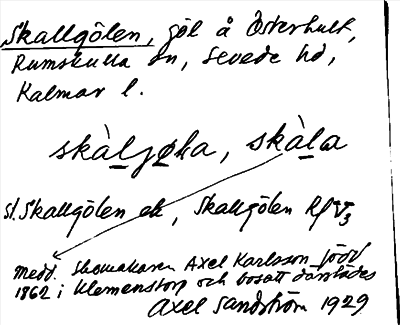 Skallgölen, göl å Österhult,
Rumskulla sn, Sevede hd,
Kalmar l.
skàljøla, skàla
sl. Skallgölen ek, Skallgölen Rf V3
medd. skomakaren Axel Karlsson född
1862 i Klemenstorp och bosatt därstädes
Axel Sandström 1929